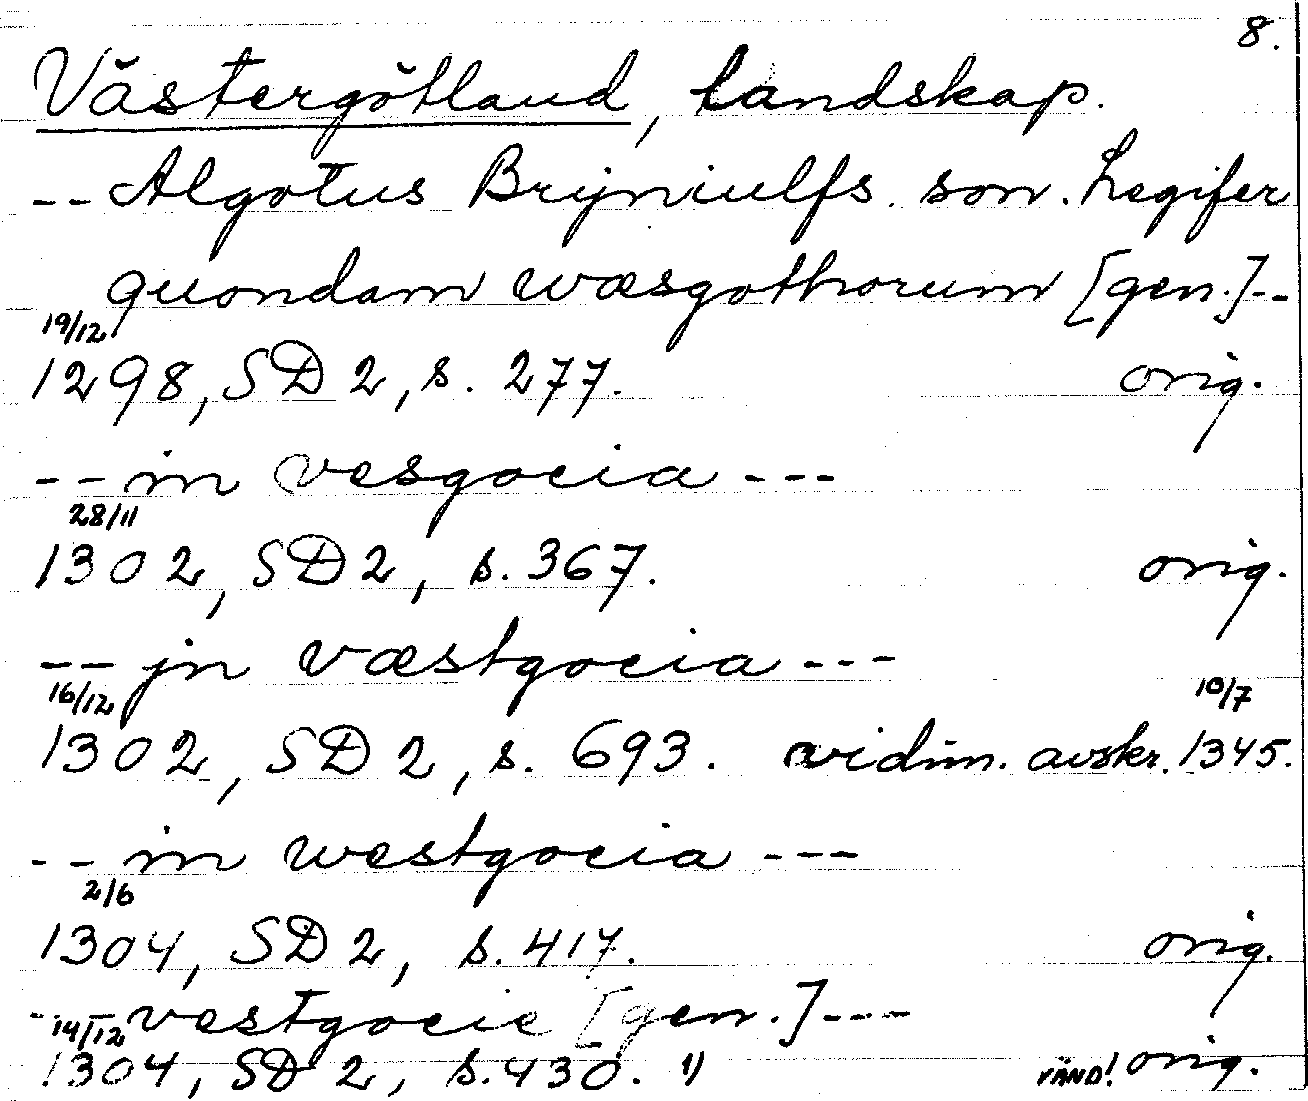 8.
Västergötland, landskap.
-- Algotus Brÿniulfs. son. Legifer
quondam wæsgothorum [gen.]--
19/12
1298, SD 2, s. 277. orig.
-- in vesgocia ---
28/11
1302, SD 2, s. 367. orig.
-- jn væstgocia ---
16/12 10/7
1302, SD 2, s. 693. vidim. avskr. 1345.
-- in westgocia ---
2/6
1304, SD 2, s. 417. orig.
--- vestgocie [gen.] ---
14/12
1304, SD 2, s. 430. 1) VÄND! orig.